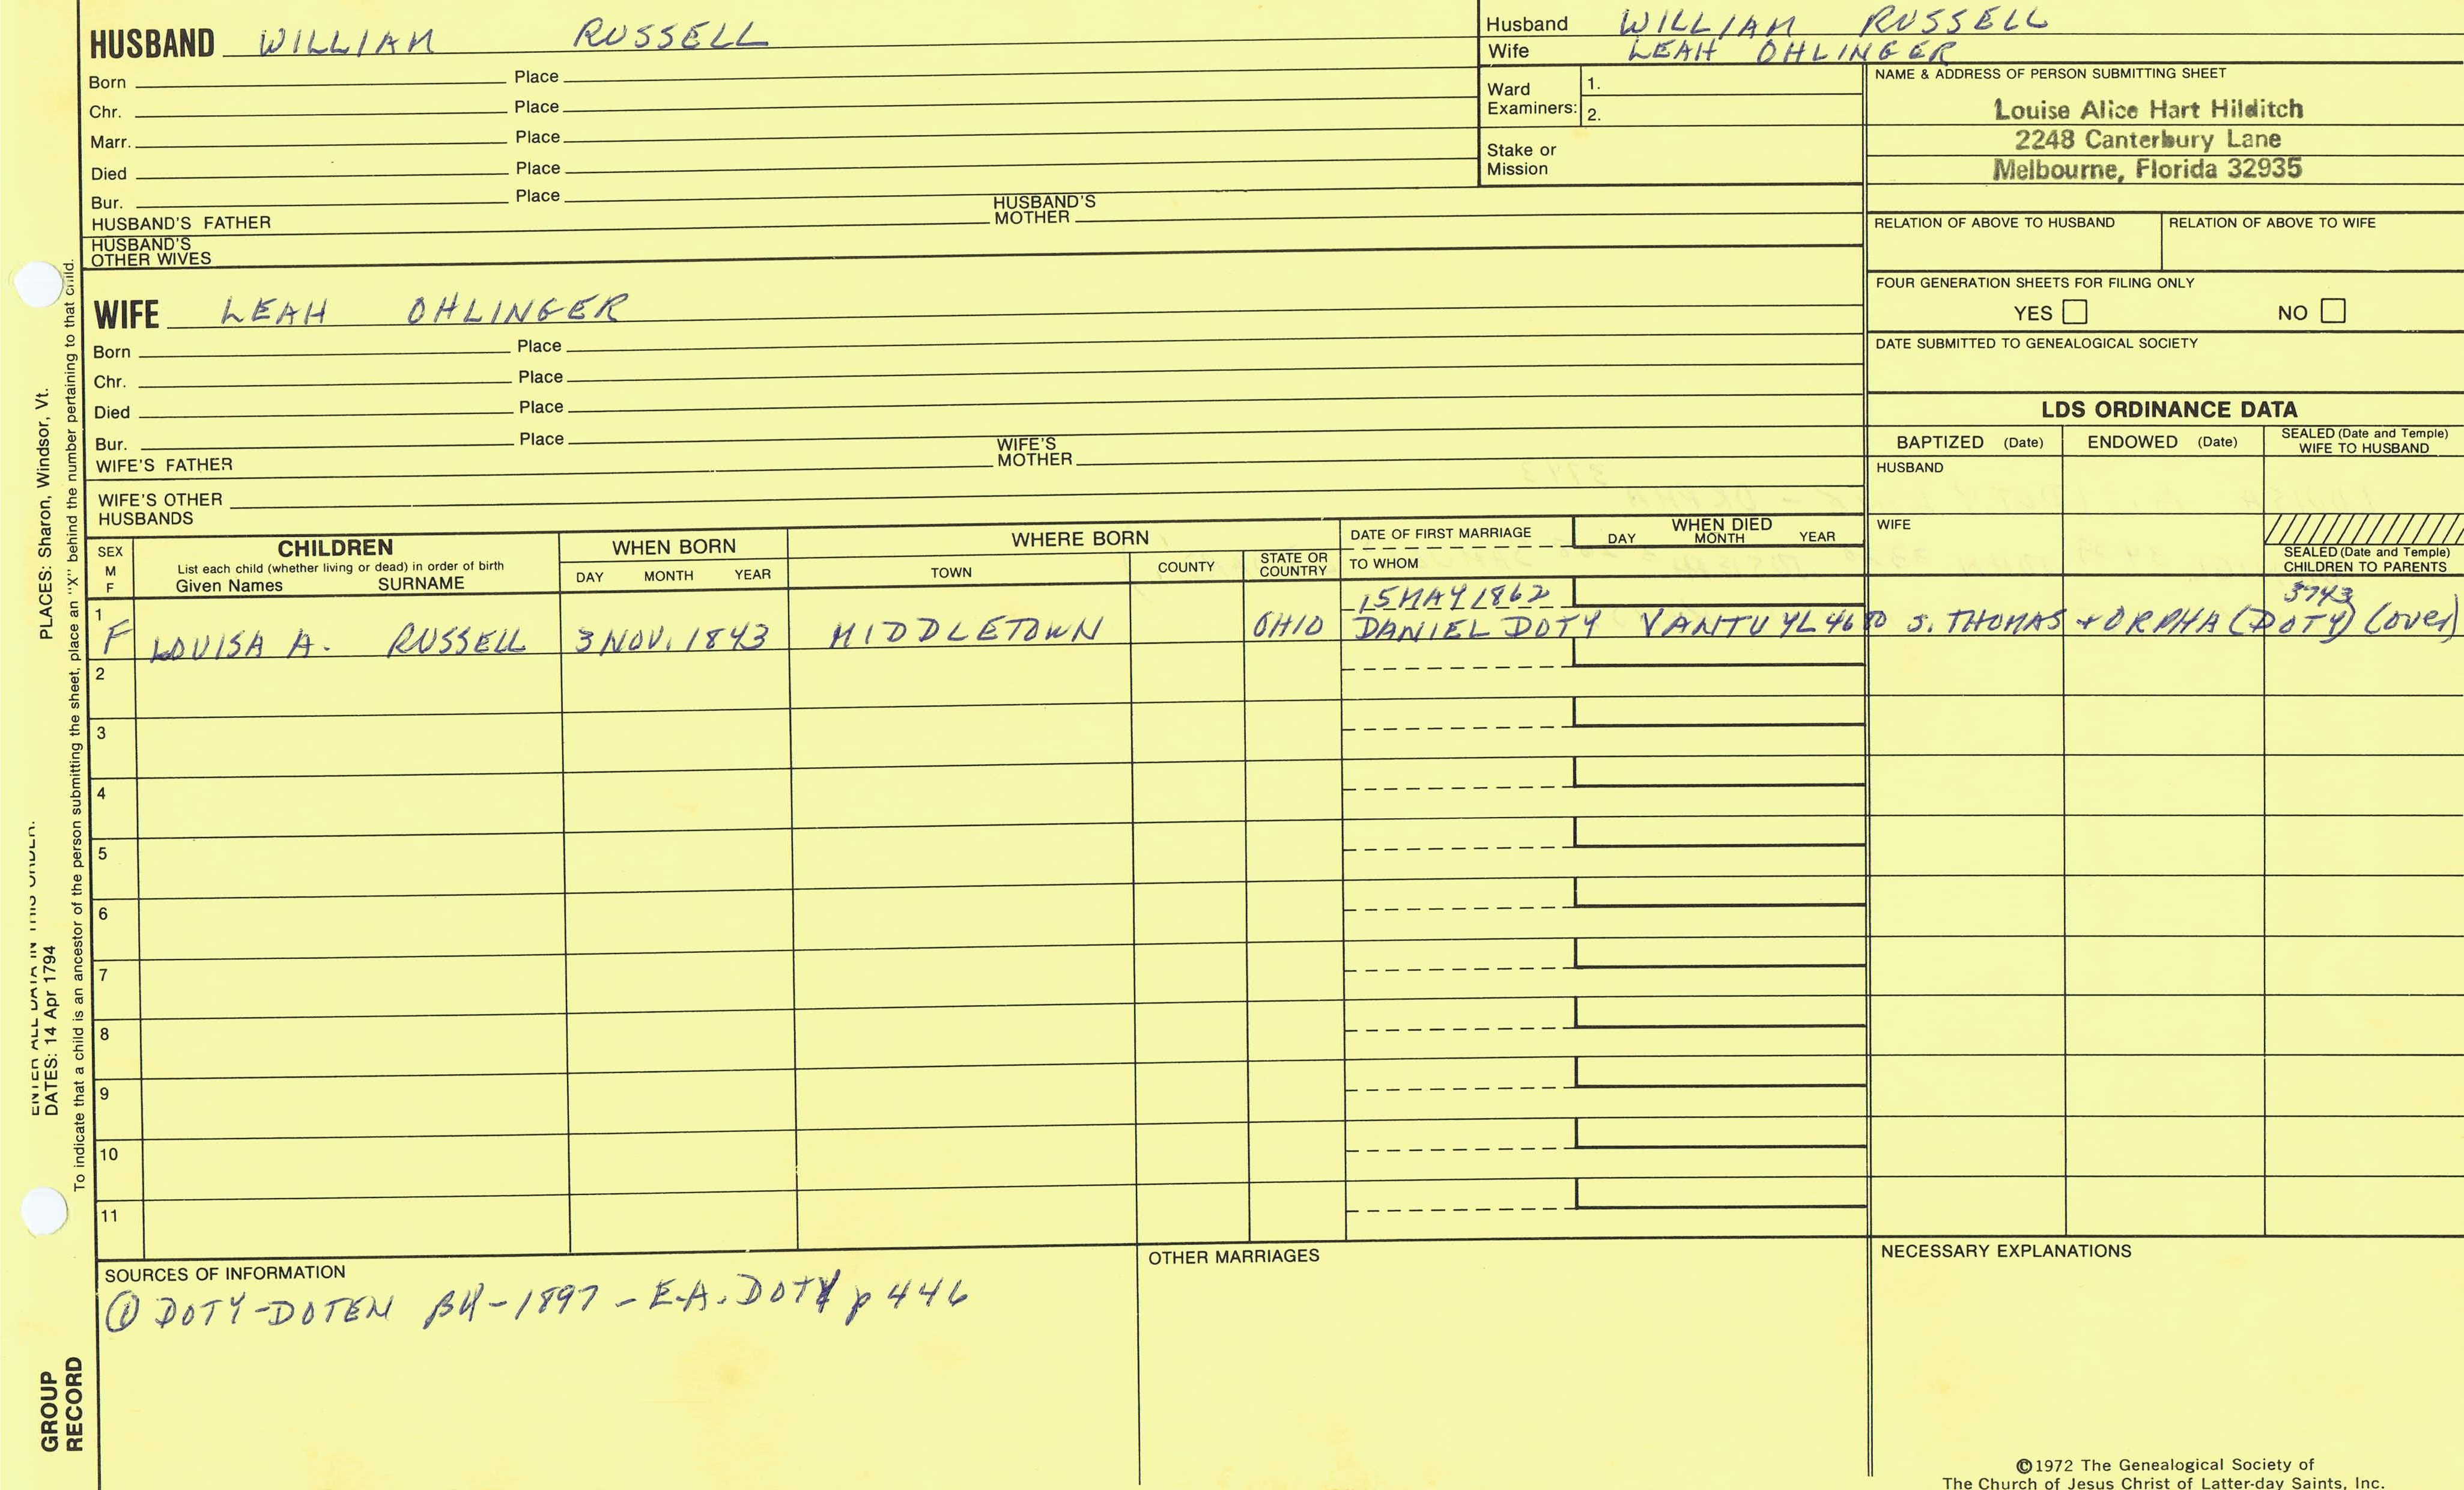 HUSBAND WILLIAM RUSSELL
Born Place
Chr. Place
Marr. Place
Died Place
Bur. Place
HUSBAND'S FATHER HUSBAND'S MOTHER
HUSBAND'S OTHER WIVES
Husband WILLIAM RUSSELL
Wife LEAH OHLINGER
Ward Examiners: 1.
2.
Stake or Mission
NAME & ADDRESS OF PERSON SUBMITTING SHEET
Louise Alice Hart Hilditch
2248 Canterbury Lane
Melbourne, Florida 32935
RELATION OF ABOVE TO HUSBAND RELATION OF ABOVE TO WIFE
FOUR GENERATION SHEETS FOR FILING ONLY
YES NO
DATE SUBMITTED TO GENEALOGICAL SOCIETY
WIFE LEAH OHLINGER
Born Place
Chr. Place
Died Place
Bur. Place
WIFE'S FATHER WIFE'S MOTHER
WIFE'S OTHER HUSBANDS
LDS ORDINANCE DATA
BAPTIZED (Date) ENDOWED (Date) SEALED (Date and Temple) WIFE TO HUSBAND
HUSBAND
WIFE
SEALED (Date and Temple) CHILDREN TO PARENTS
SEX M F
CHILDREN
List each child (whether living or dead) in order of birth
Given Names SURNAME
WHEN BORN
DAY MONTH YEAR
WHERE BORN
TOWN COUNTY STATE OR COUNTRY
DATE OF FIRST MARRIAGE
TO WHOM
WHEN DIED
DAY MONTH YEAR
1 15 MAY 1862 3743
F LOUISA A. RUSSELL 3 NOV. 1843 MIDDLETOWN OHIO DANIEL DOTY VANTUYL 4680 S. THOMAS + ORPHA (DOTY) (over)
2
3
4
5
6
7
8
9
10
11
SOURCES OF INFORMATION
① DOTY-DOTEN BK-1897 - E.A. DOTY p 446
OTHER MARRIAGES
NECESSARY EXPLANATIONS
©1972 The Genealogical Society of
The Church of Jesus Christ of Latter-day Saints, Inc.
ENTER ALL DATA IN THIS ORDER:
DATES: 14 Apr 1794 PLACES: Sharon, Windsor, Vt.
To indicate that a child is an ancestor of the person submitting the sheet, place an "X" behind the number pertaining to that child.
GROUP RECORD